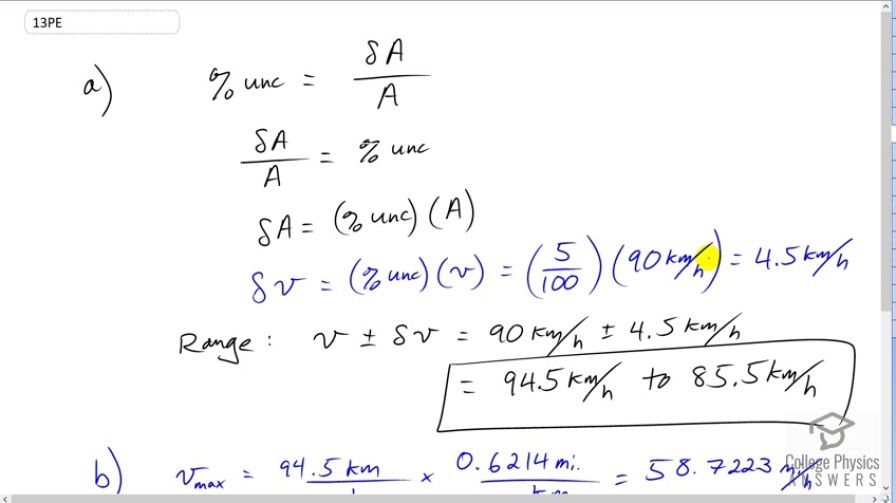 13PE
a) % unc = δA / A
δA / A = % unc
δA = (% unc)(A)
δv = (% unc)(v) = (5/100)(90 km/h) = 4.5 km/h
Range: v ± δv = 90 km/h ± 4.5 km/h
= 94.5 km/h to 85.5 km/h
b) vmax = 94.5 km × 0.6214 mi. = 58.7223 mi/h
College Physics
ANSWERS